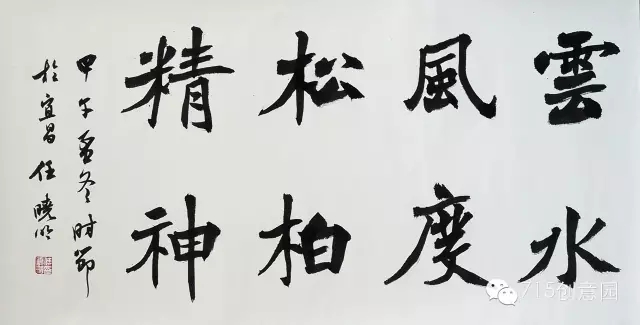 雲水
風度
松柏
精神
甲午孟冬时节
於宜昌任曉明
715创意园